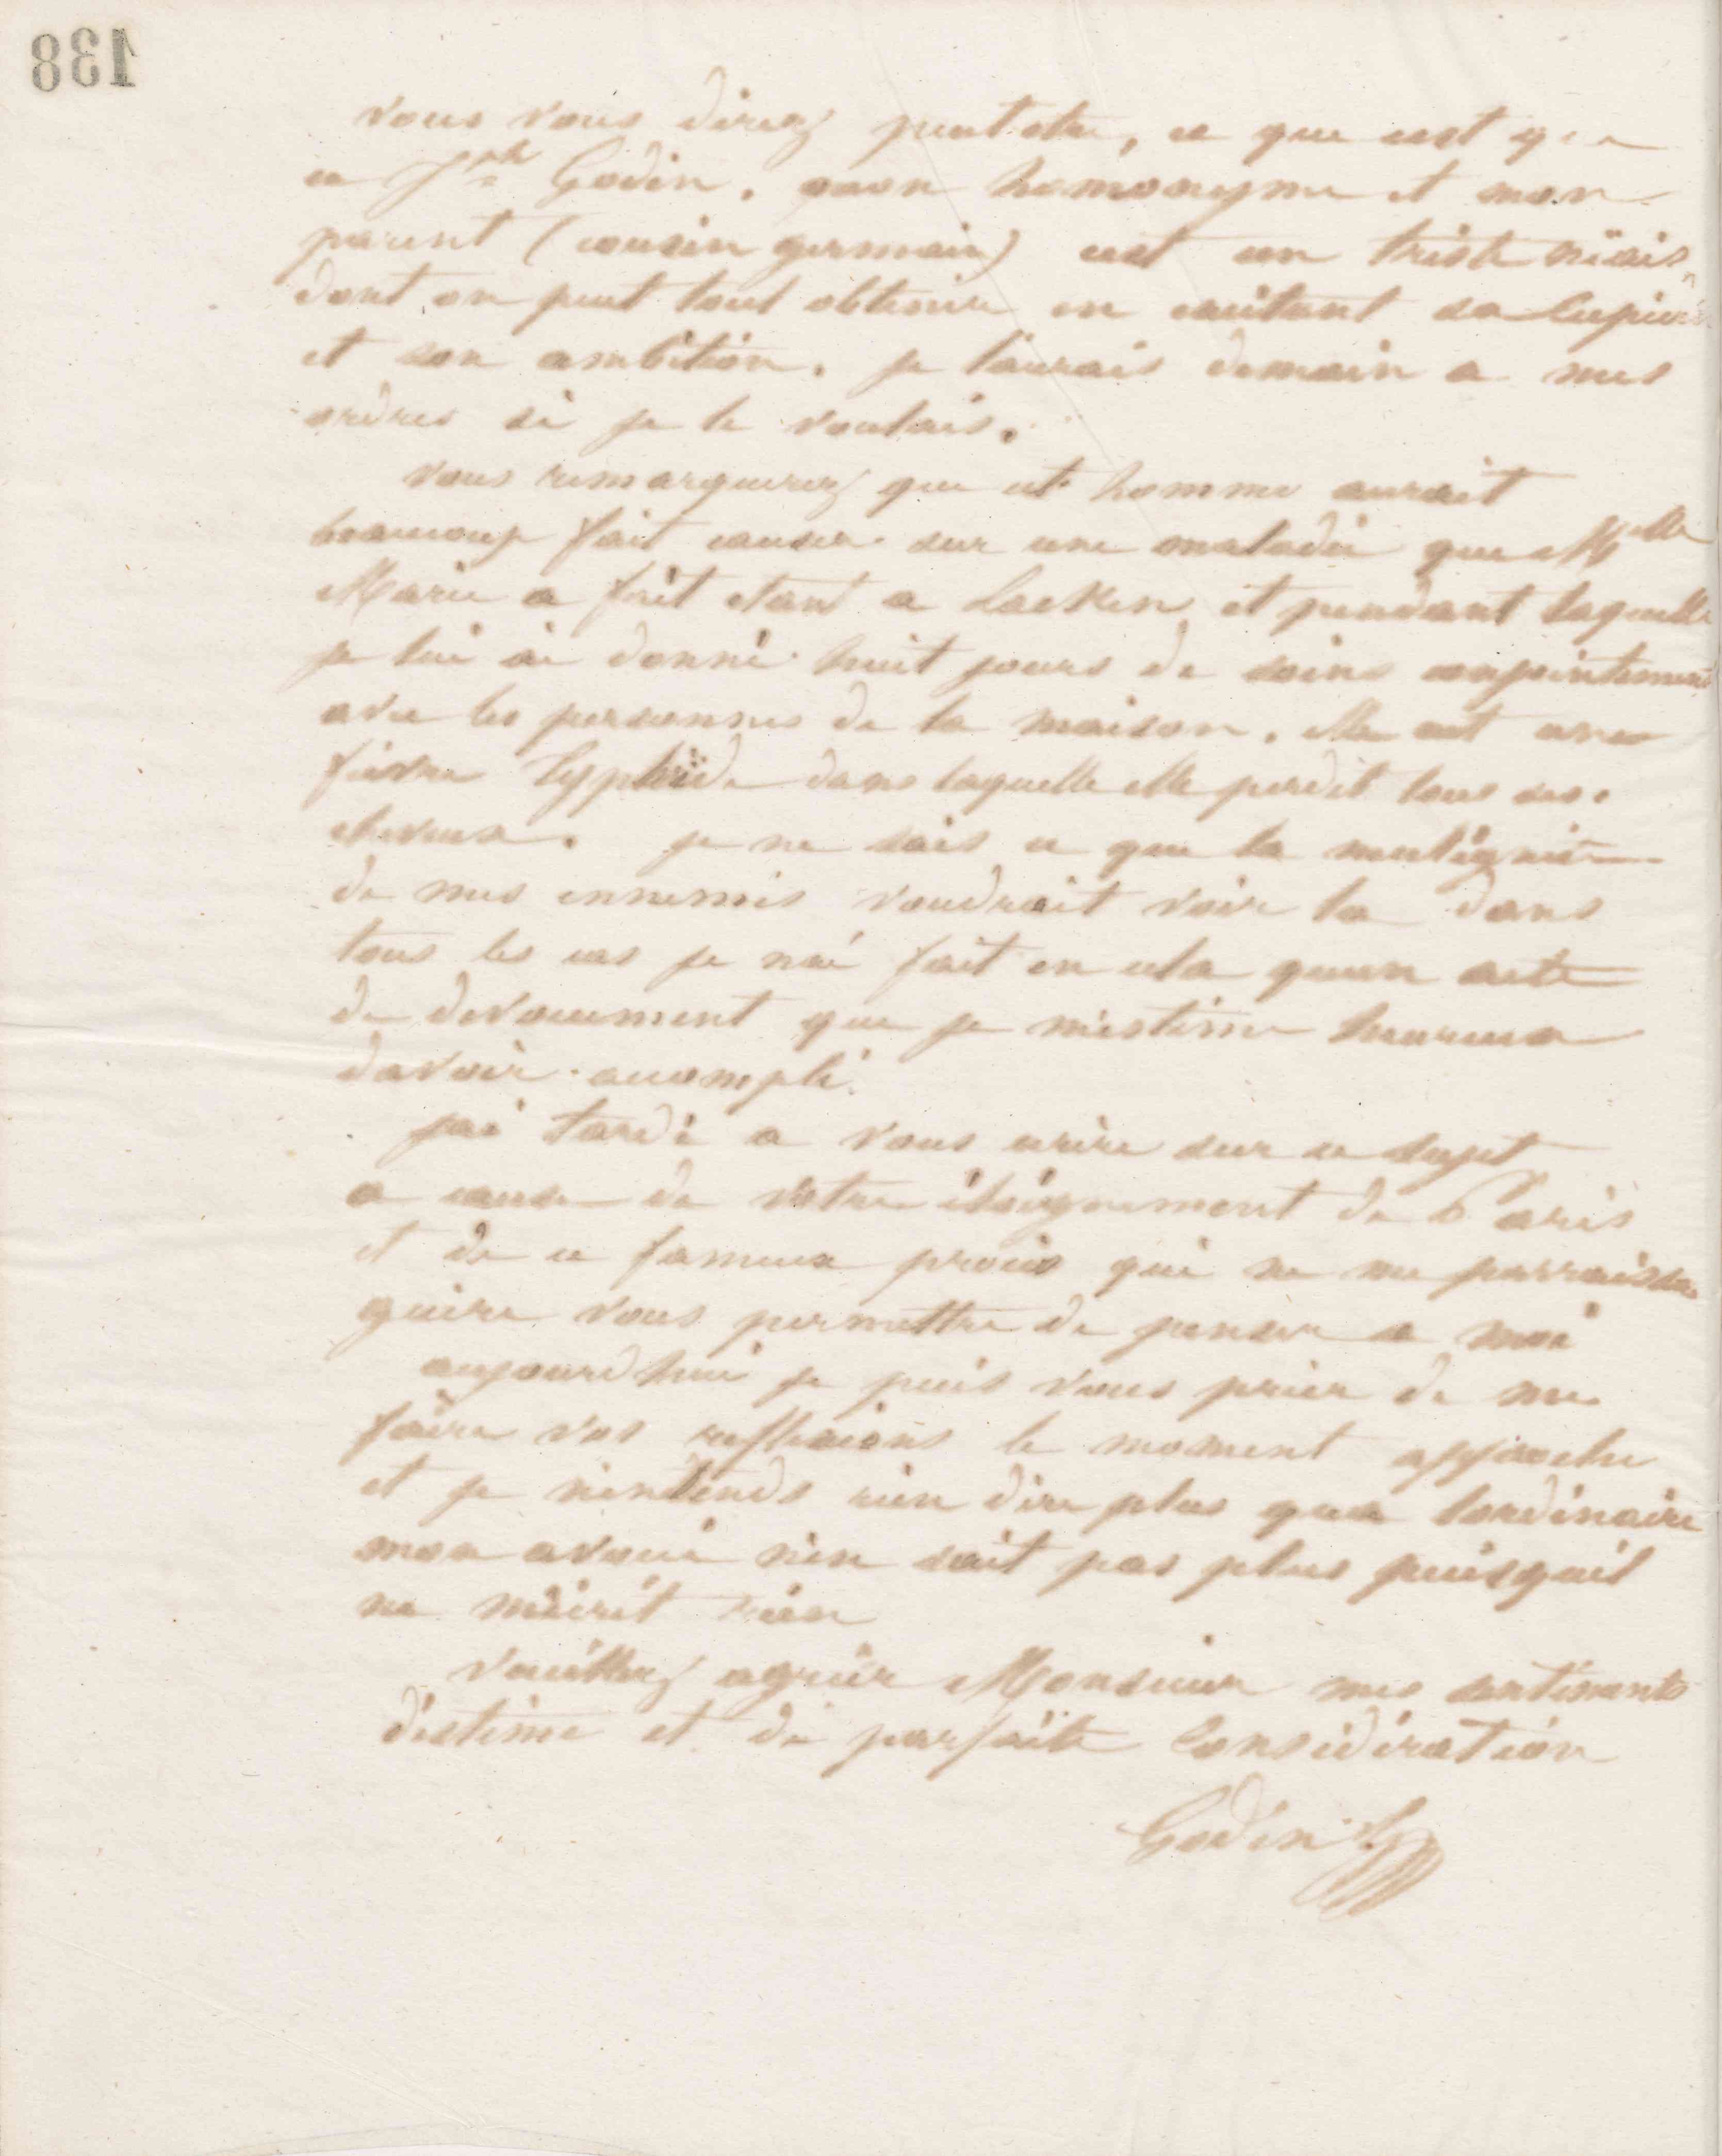 138
vous vous direz peut etre, ce que cest que
ce Jph Godin. mon homonyme et mon
parent (cousin germain) cest un triste niais
dont on peut tout obtenir en excitant sa Cupidité
et son ambition. je laurais demain a mes
ordres si je le voulais.
vous remarquerez que cet homme aurait
beaucoup fait causer sur une maladie que Melle
Marie a fait etant a Laeken et pendant laquelle
je lui ai donné huit jours de soins conjointement
avec les personnes de la maison. elle eut une
fievre Typhoïde dans laquelle elle perdit tous ses
cheveux. je ne sais ce que la malignité
de mes ennemis voudrait voir la dans
tous les cas je nai fait en cela quun acte
de devouement que je m'estime heureux
davoir accompli.
jai tardé a vous ecrire sur ce sujet
a cause de votre éloignement de Paris
et de ce fameux procès qui ne me parraissait
guère vous permettre de penser a moi
aujourdhui je puis vous prier de me
faire vos reflexions le moment approche
et je n'entends rien dire plus qua lordinaire
mon avoué n'en sait pas plus puisquil
ne m'écrit rien
Veuillez agréer Monsieur mes sentiments
d'estime et de parfaite Considération
Godin